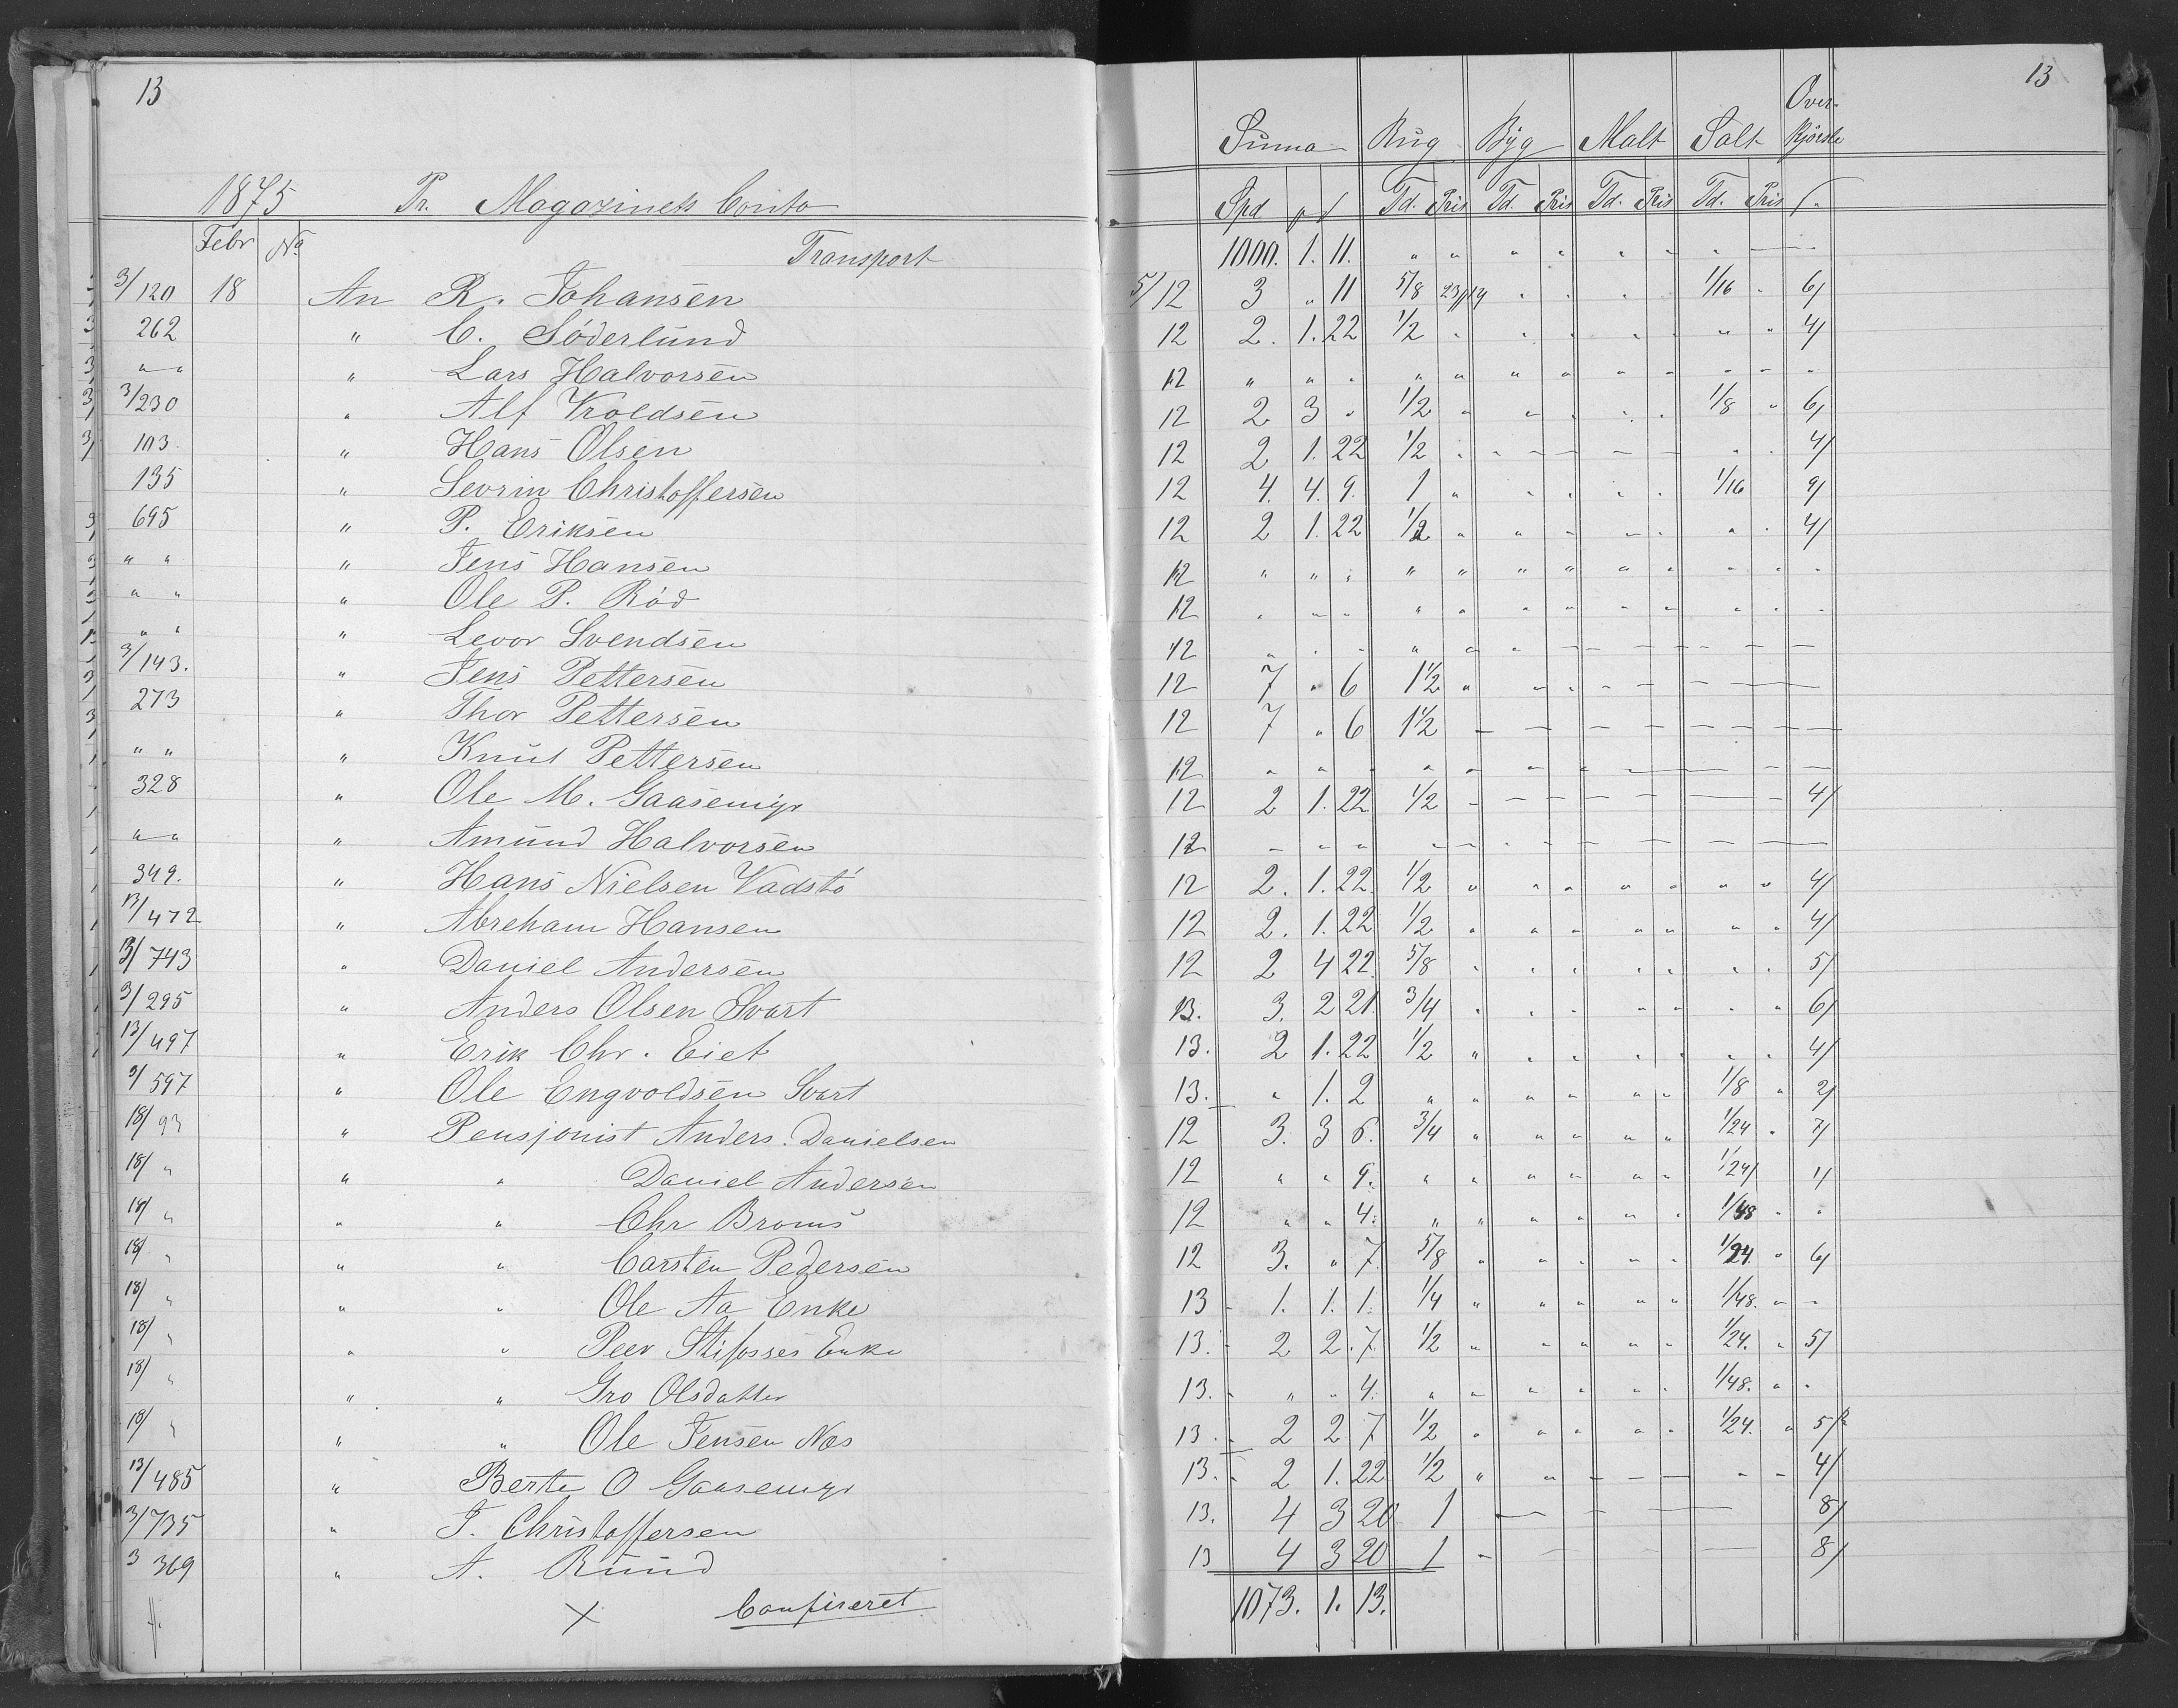 13
1875 Pr. Magazinets Conto
Febr No Transport
3/120 18 An R. Johansen
262 " C. Söderlund
" " " Lars Halvorsen
3/230 " Alf Kroldsen
103. " Hans Olsen
135 " Sevrin Christoffersen
695 " P. Eriksen
" " " Jens Hansen
" " " Ole P. Röd
" " " Levor Svendsen
3/143. " Jens Pettersen
273 " Thor Pettersen
" " " Knut Pettersen
328 " Ole M. Gaasemyr
" " " Amund Halvorsen
349. " Hans Nielsen Vadstö
13/472 " Abreham Hansen
13/743 " Daniel Andersen
3/295 " Anders Olsen Svart
13/497 " Erik Chr. Eiet
3/597 " Ole Engvoldsen Svart
18/93 " Pensjonist Anders. Danielsen
18/ " " " Daniel Andersen
18/ " " " Chr Broms
18/ " " " Carsten Pedersen
18/ " " " Ole Aa Enke
18/ " " " Peer Enke
18/ " " " Gro Olsdatter
18/ " " " Ole Jensen Næs
13/485 " Berte O Gaasemyr
3/735 " J. Christoffersen
3 369 " A. Rund
× Confireret
13
Suma Rug Byg Malt Salt Over-
kjörsle
Spd Td. Pris Td. Pris Td. Pris Td. Pris
1000. 1. 11. " " " " " " "
5/12 3 " 11 5/8 23/14 " " " " 1/16 " 6/
12 2. 1. 22 1/2 " " " " " " " 4/
12 " " " " " " " " " " " "
12 2 3 " 1/2 " " " " " 1/8 " 6/
12 2 1. 22 1/2 " " " " " " " 4/
12 4. 4. 9. 1 " " " " " 1/16 9/
12 2 1. 22 1/2 " " " " " " " 4/
12 " " " " " " " " " " " "
12 " " " " " " " " " " " "
12 " " " " " " " " " " " "
12 7 " 6 1 1/2 " " " " "
12 7 " 6 1 1/2
12 " " " " " " "
12 2 1. 22 1/2 4/
12 " " "
12 2. 1. 22. 1/2 " " " " " " " 4/
12 2. 1. 22 1/2 " " " " " " " 4/
12 2 4 22. 5/8 " " " " " " " 5/
13. 3. 2 21. 3/4 " " " " " " " 6/
13. 2 1. 22 1/2 " " " " " " " 4/
13. " 1. 2 " " " " " " 1/8 " 2/
12 3. 3 6. 3/4 " " " " " 1/24 " 7/
12 " " 9. " " " " " " 1/24/ 1/
12 " " 4. " " " " " " 1/48 " "
12 3. " 7. 5/8 " " " " " 1/24. " 6/
13 1. 1. 1. 1/4 " " " " " 1/48. " "
13. 2 2. 7. 1/2 " " " " " 1/24. " 5/
13. " " 4. " " " " " " 1/48. " "
13. 2 2 7 1/2 " " " " " 1/24. " 5/
13. 2 1. 22 1/2 " " " " 4/
13. 4 3 20 1 8/
13 4 3 20 1 8/
1073. 1. 13.